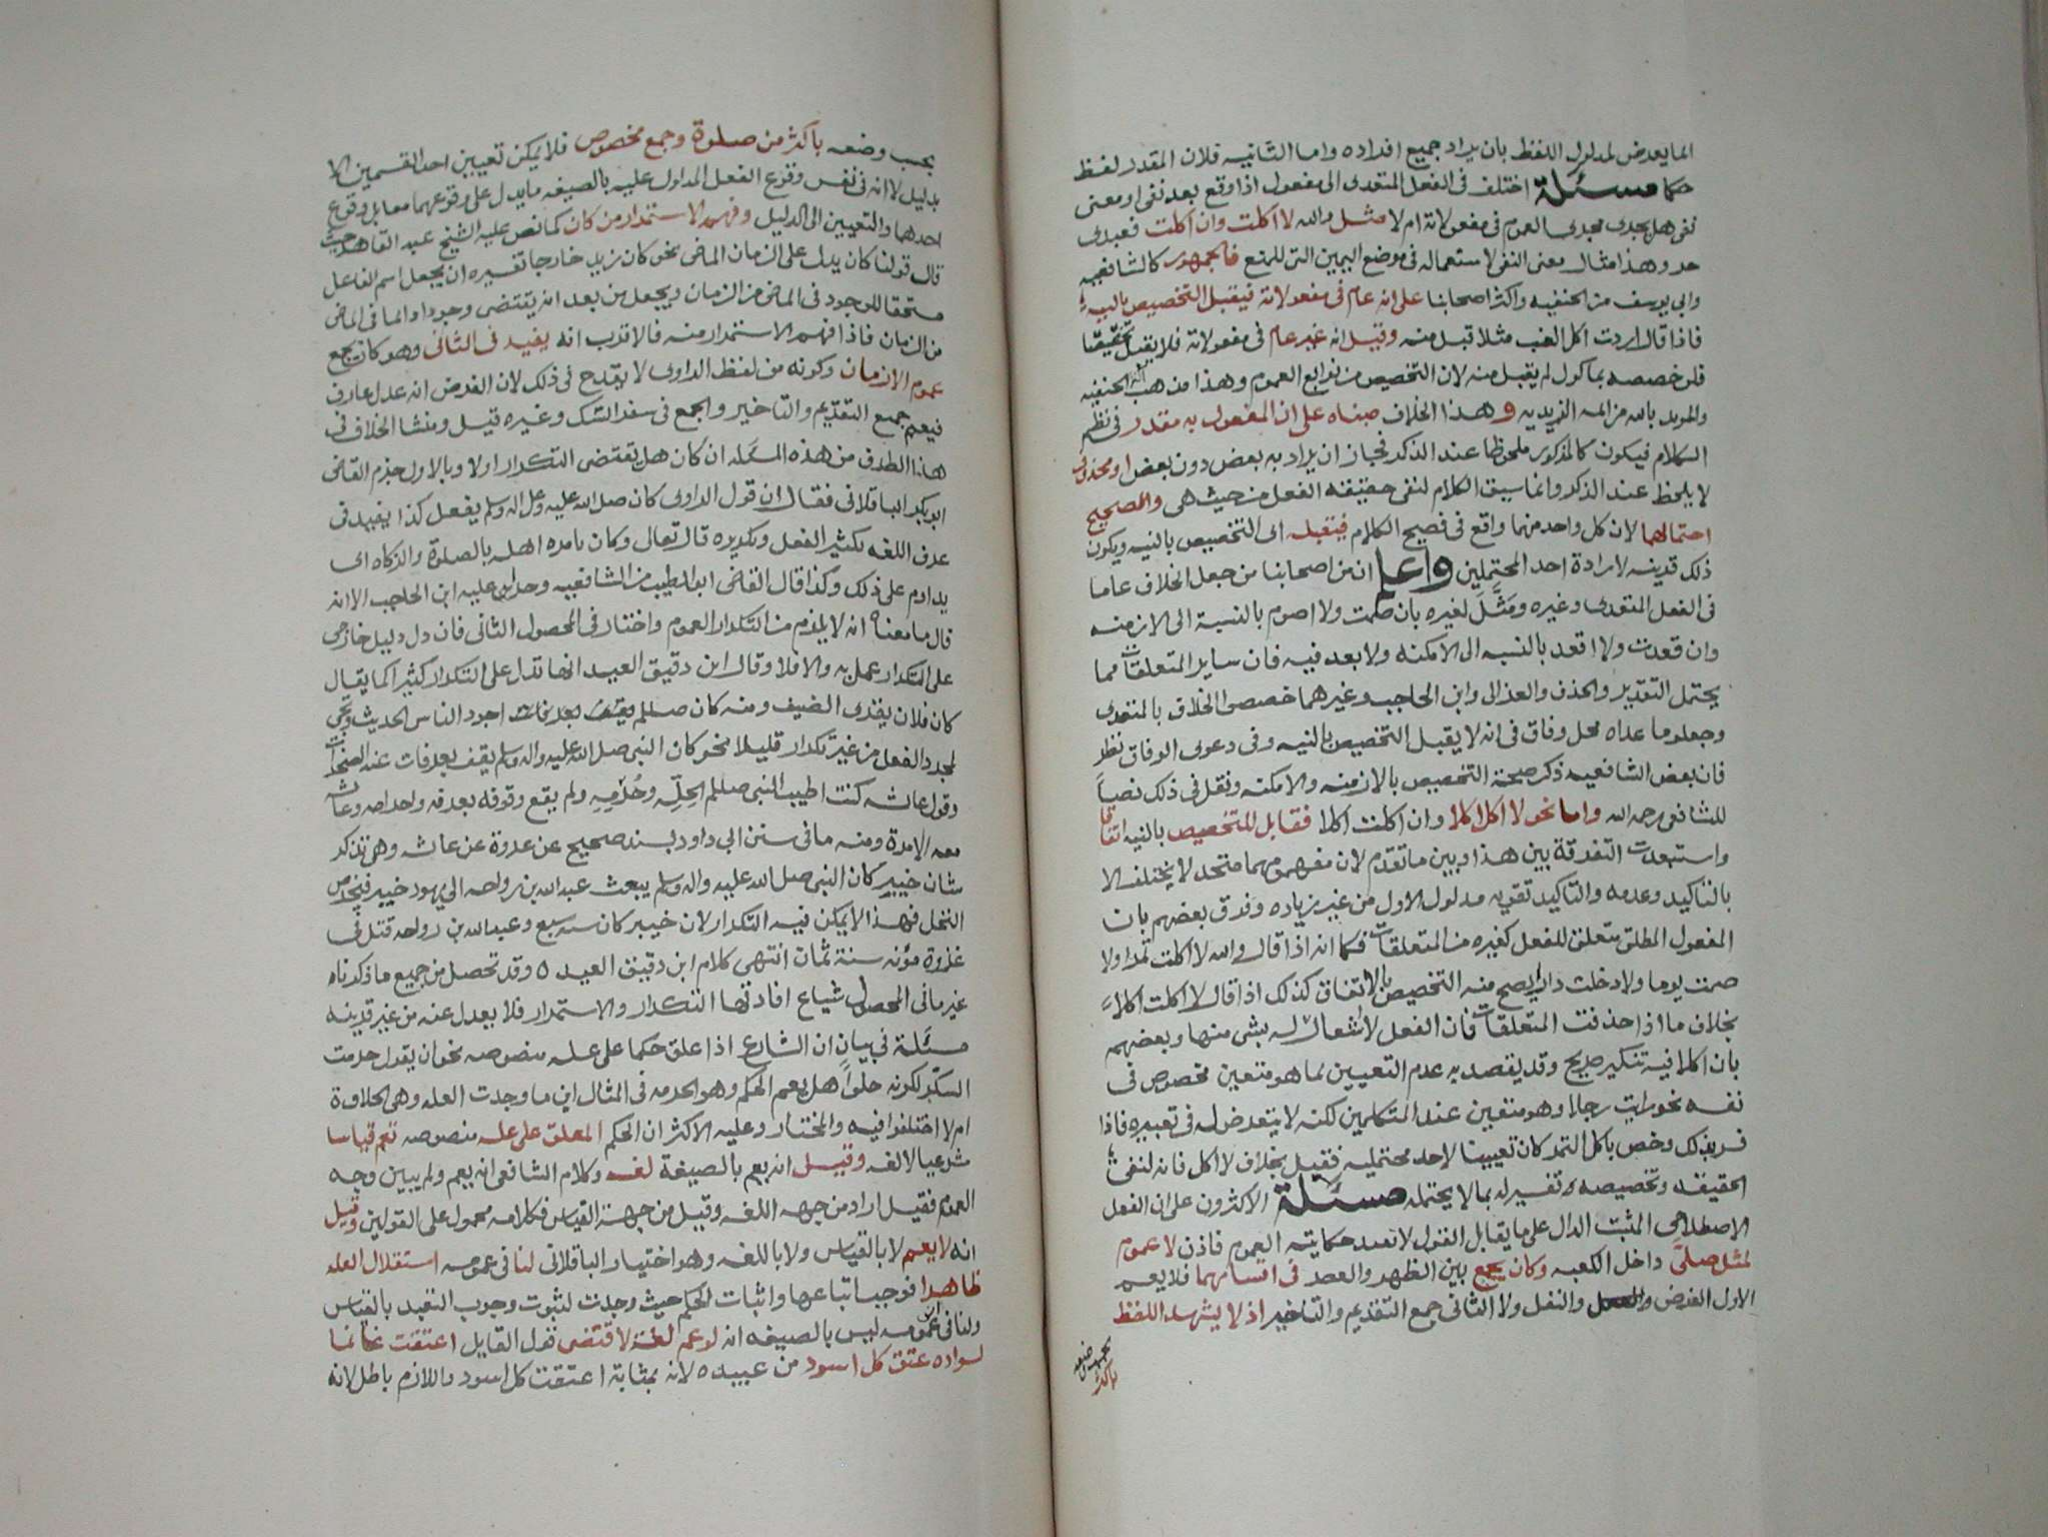 انما يعرض لمدلول اللفظ بان يراد جميع افراده واما الثانيه فلان المقدر لفظ
حكما مسئلة اختلف في الفعل المتعدى الى مفعول اذا وقع بعد نفى او معنى
نفى هل يجرى مجرى العموم في مفعولاته ام لا مثل والله لا اكلت وان اكلت فعبدى
حر وهذا مثال معنى النفى لاستعماله في موضع اليمين التى للمنع فالجمهور كالشافعيه
وابي يوسف من الحنفيه واكثر اصحابنا على انه عام في مفعولاته فيقبل التخصيص بالنيه
فاذا قال اردت اكل العنب مثلا قبل منه وقيل انه غير عام في مفعولاته فلا يقبل تخصيصا
فلو خصصه بماكول لم يقبل منه لان التخصيص من توابع العموم وهذا مذهب الحنفيه
والمويد بالله من ائمه الزيديه وهذا الخلاف مبناه على ان المفعول به مقدر في نظم
الكلام فيكون كالمذكور ملحوظا عند الذكر فجاز ان يراد به بعض دون بعض او محذوف
لا يلحظ عند الذكر وانما سيق الكلام لنفى حقيقه الفعل من حيث هى والصحيح
احتمالهما لان كل واحد منهما واقع في فصيح الكلام فيقبله اى التخصيص بالنيه ويكون
ذلك قرينه لارادة احد المحتملين واعلم ان من اصحابنا من جعل الخلاف عاما
في الفعل المتعدى وغيره ومَثَّلَ لغيره بان صمت ولا اصوم بالنسبة الى الازمنه
وان قعدت ولا اقعد بالنسبه الى الامكنه ولا بعد فيه فان ساير المتعلقات مما
يحتمل التقدير والحذف والغزالى وابن الحاجب وغيرهما خصصوا الخلاف بالمتعدى
وجعلوا ما عداه محل وفاق في انه لا يقبل التخصيص بالنيه وفي دعوى الوفاق نظر
فان بعض الشافعيه ذكر صحة التخصيص بالازمنه والامكنه ونقل في ذلك نصا
للشافعى رحمه الله واما نحو لا اكل اكلا وان اكلت اكلا فقابل للتخصيص بالنيه اتفاقا
واستبعدت التفرقة بين هذا وبين ما تقدم لان مفهومهما متحد لا يختلف الا
بالتاكيد وعدمه والتاكيد تقويه مدلول الاول من غير زياده وفرق بعضهم بان
المفعول المطلق متعلق للفعل كغيره من المتعلقات فكما انه اذا قال والله لا اكلت تمرا ولا
صمت يوما ولا دخلت دارا يصح منه التخصيص بالاتفاق كذلك اذا قال لا اكلت اكلا
بخلاف ما اذا حذفت المتعلقات فان الفعل لا اشعار له بشى منها وبعضهم
بان اكلا فيه تنكير صريح وقد يقصد به عدم التعيين لما هو متعين مخصوص في
نفسه نحو رايت رجلا وهو متعين عند المتكلمين لكنه لا يتعرض له في تعبيره فاذا
فسر بذلك وخص باكل التمر كان تعيينا لاحد محتمليه فقبل بخلاف لا اكل فانه لنفى
الحقيقه وتخصيصه تفسير له بما لا يحتمله مسئلة الاكثرون على ان الفعل
الاصطلاحى المثبت الدال على ما يقابل القول لا تفيد حكايته العموم فاذن لا عموم
لمثل صلى داخل الكعبه وكان يجمع بين الظهر والعصر في اقسامهما فلا يعم
الاول الفرض والنفل ولا الثانى جمع التقديم والتاخير اذ لا يشهد اللفظ
بحسب وضعه
باكثر
بحسب وضعه باكثر من صلوة وجمع مخصوص فلا يمكن تعيين احد القسمين الا
بدليل لا انه في نفس وقوع الفعل المدلول عليه بالصيغه ما يدل على وقوعهما معا بل وقوع
احدهما والتعيين الى الدليل وفهم الاستمرار من كان كما نص عليه الشيخ عبد القاهر حيث
قال قولنا كان يدل على الزمان الماضى نحو كان زيد خارجا تفسيره ان يجعل اسم الفاعل
مستحقا للوجود في الماضى من الزمان ويجعل من بعد انه يقتضى وجودا دائما في الماضى
من الزمان فاذا فهم الاستمرار منه فالاقرب انه يفيد في الثانى وهو كان يجمع
عموم الازمان وكونه من لفظ الراوى لا يقدح في ذلك لان الفرض انه عدل عارف
فيعم جميع التقديم والتاخير والجمع في سفر النسك وغيره قيل ومنشا الخلاف في
هذا الطرف من هذه المسئله ان كان هل يقتضى التكرار اولا وبالاول جزم القاضى
ابو بكر الباقلانى فقال ان قول الراوى كان صلى الله عليه وعلى اله وسلم يفعل كذا يفيد في
عرف اللغه تكثير الفعل وتكريره قال تعالى وكان يامره اهله بالصلوة والزكاه اى
يداوم على ذلك وكذا قال القاضى ابو الطيب من الشافعيه وجرى عليه ابن الحاجب الا انه
قال ما معناه انه لا يلزم من التكرار العموم واختار في المحصول الثانى فان دل دليل خارجى
على التكرار عمل به والا فلا وقال ابن دقيق العيد انها تدل على التكرار كثيرا كما يقال
كان فلان يقرى الضيف ومنه كان صلعم اجود الناس الحديث وتجى
لمجرد الفعل من غير تكرار قليلا نحو كان النبى صلى الله عليه واله وسلم يقف بعرفات عند الصخرات
وقول عائشه كنت اطيب النبى صلعم لحِلِّه وحُرُمِه ولم يقع وقوفه بعرفه واحرامه وعائشه
معه الا مرة ومنه ما في سنن ابى داود بسند صحيح عن عروة عن عائشه وهى تذكر
شان خيبر كان النبى صلى الله عليه واله وسلم يبعث عبدالله بن رواحه الى يهود خيبر فيخرص
النخل فهذا لا يمكن فيه التكرار لان خيبر كان سنه سبع وعبدالله بن رواحه قتل في
غزوة مؤته سنة ثمان انتهى كلام ابن دقيق العيد ٥ وقد تحصل من جميع ما ذكرناه
غير ما في المحصول شياع افادتها التكرار والاستمرار فلا يعدل عنه من غير قرينه
مسئلة في بيان ان الشارع اذا علق حكما على علـه منصوصه نحو ان يقول حرمت
السكّر لكونه حلوًا هل يعم الحكم وهو الحرمه في المثال اين ما وجدت العله وهى الحلاوة
ام لا اختلفوا فيه والمختار وعليه الاكثر ان الحكم المعلق على علـه منصوصه تعم قياسا
شرعيا لا لغه وقيل انه يعم بالصيغة لغه وكلام الشافعى انه يعم ولم يبين وجه
العموم فقيل اراد من جهه اللغه وقيل من جهة القياس فكلامه محمول على القولين وقيل
انه لا يعم لا بالقياس ولا باللغه وهو اختيار الباقلانى لنا في عمومه استقلال العله
ظاهرا فوجب اتباعها واثبات الحكم حيث وجدت لثبوت وجوب التعبد بالقياس
ولنا في ان عمومه ليس بالصيغه انه لو عم لغة لاقتضى قول القايل اعتقت غانما
لسواده عتق كل اسود من عبيده لانه بمثابة اعتقت كل اسود واللازم باطل لانه